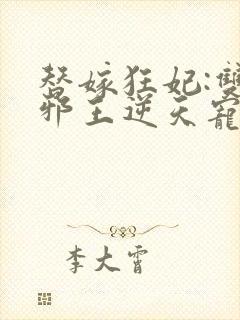 替嫁狂妃:雙
邪王逆天寵
李大霄